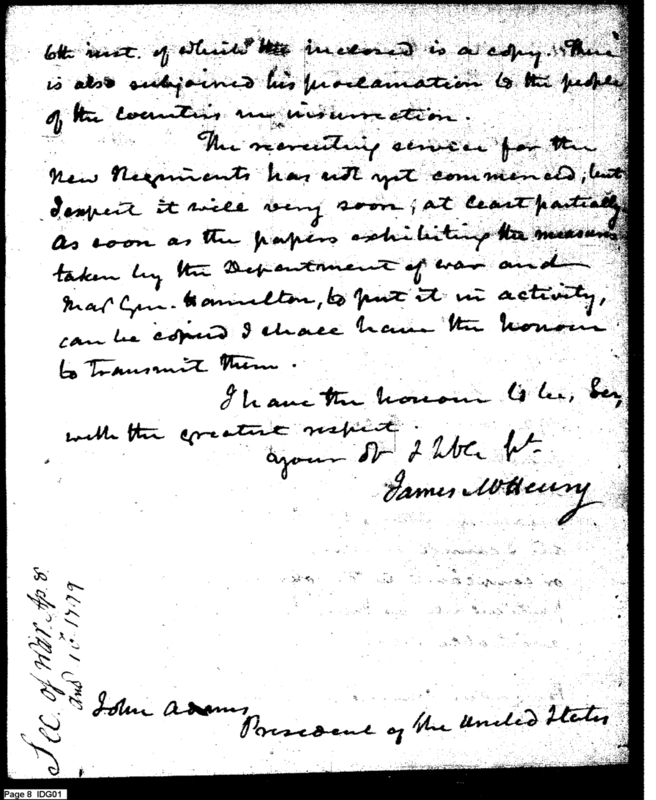 6th inst. of which the inclosed is a copy. There
is also subjoined his proclamation to the people
of the counties in insurrection.
The recruiting service for the
New Regiments has not yet commenced, but
I expect it will very soon; at least partially.
As soon as the papers exhibiting the measures
taken by the Department of war and
Maj Gen. Hamilton, to put it in activity,
can be copied I shall have the honour
to transmit them.
I have the honour to be, Sir,
with the greatest respect.
your ob & hble st.
James McHenry
John Adams
President of the United States
Sec. of War. Ap. 8
ansd 1799
Page 8 IDG01